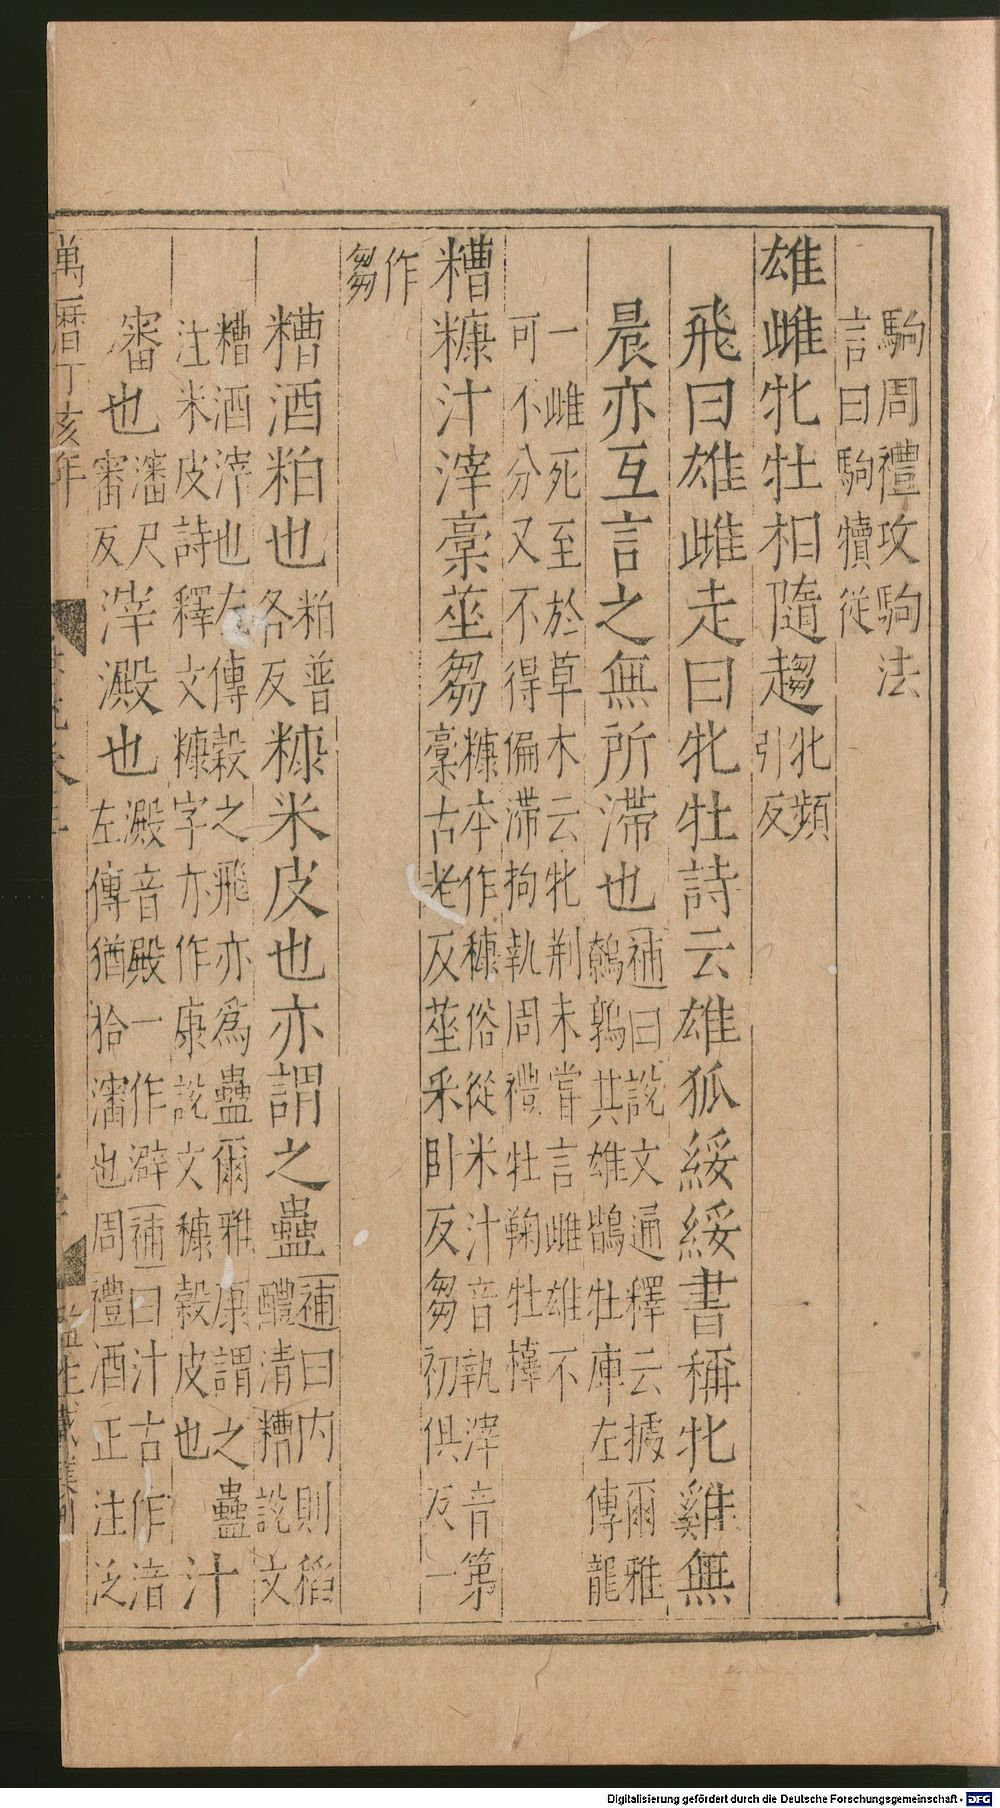 駒周禮攻駒法
言曰駒犢從
雄雌牝牡相隨趨牝頻
引反
飛曰雄雌走曰牝牡詩云雄狐綏綏書稱牝雞無
晨亦互言之無所滯也補曰說文通釋云據爾雅
鷯鶉其雄鶛牡庳左傳龍
一雌死至於草木云牝荆未嘗言雌雄不
可不分又不得偏滯拘執周禮牡鞠牡橭
糟糠汁滓稾莝芻糠本作穅俗從米汁音執滓音第
稾古老反莝釆卧反芻初俱反一
作
芻
糟酒粕也粕普
各反
糠米皮也亦謂之蠱補曰内則稻
醴清糟說文
糟酒滓也左傳穀之飛亦為蠱爾雅康謂之蠱
注米皮詩釋文糠字亦作康說文穅穀皮也
汁
瀋也瀋尺
審反
滓澱也澱音殿一作澼補曰汁古作湆
左傳猶拾瀋也周禮酒正注泛
萬曆丁亥年
監生
Digitalisierung gefördert durch die Deutsche Forschungsgemeinschaft - DFG